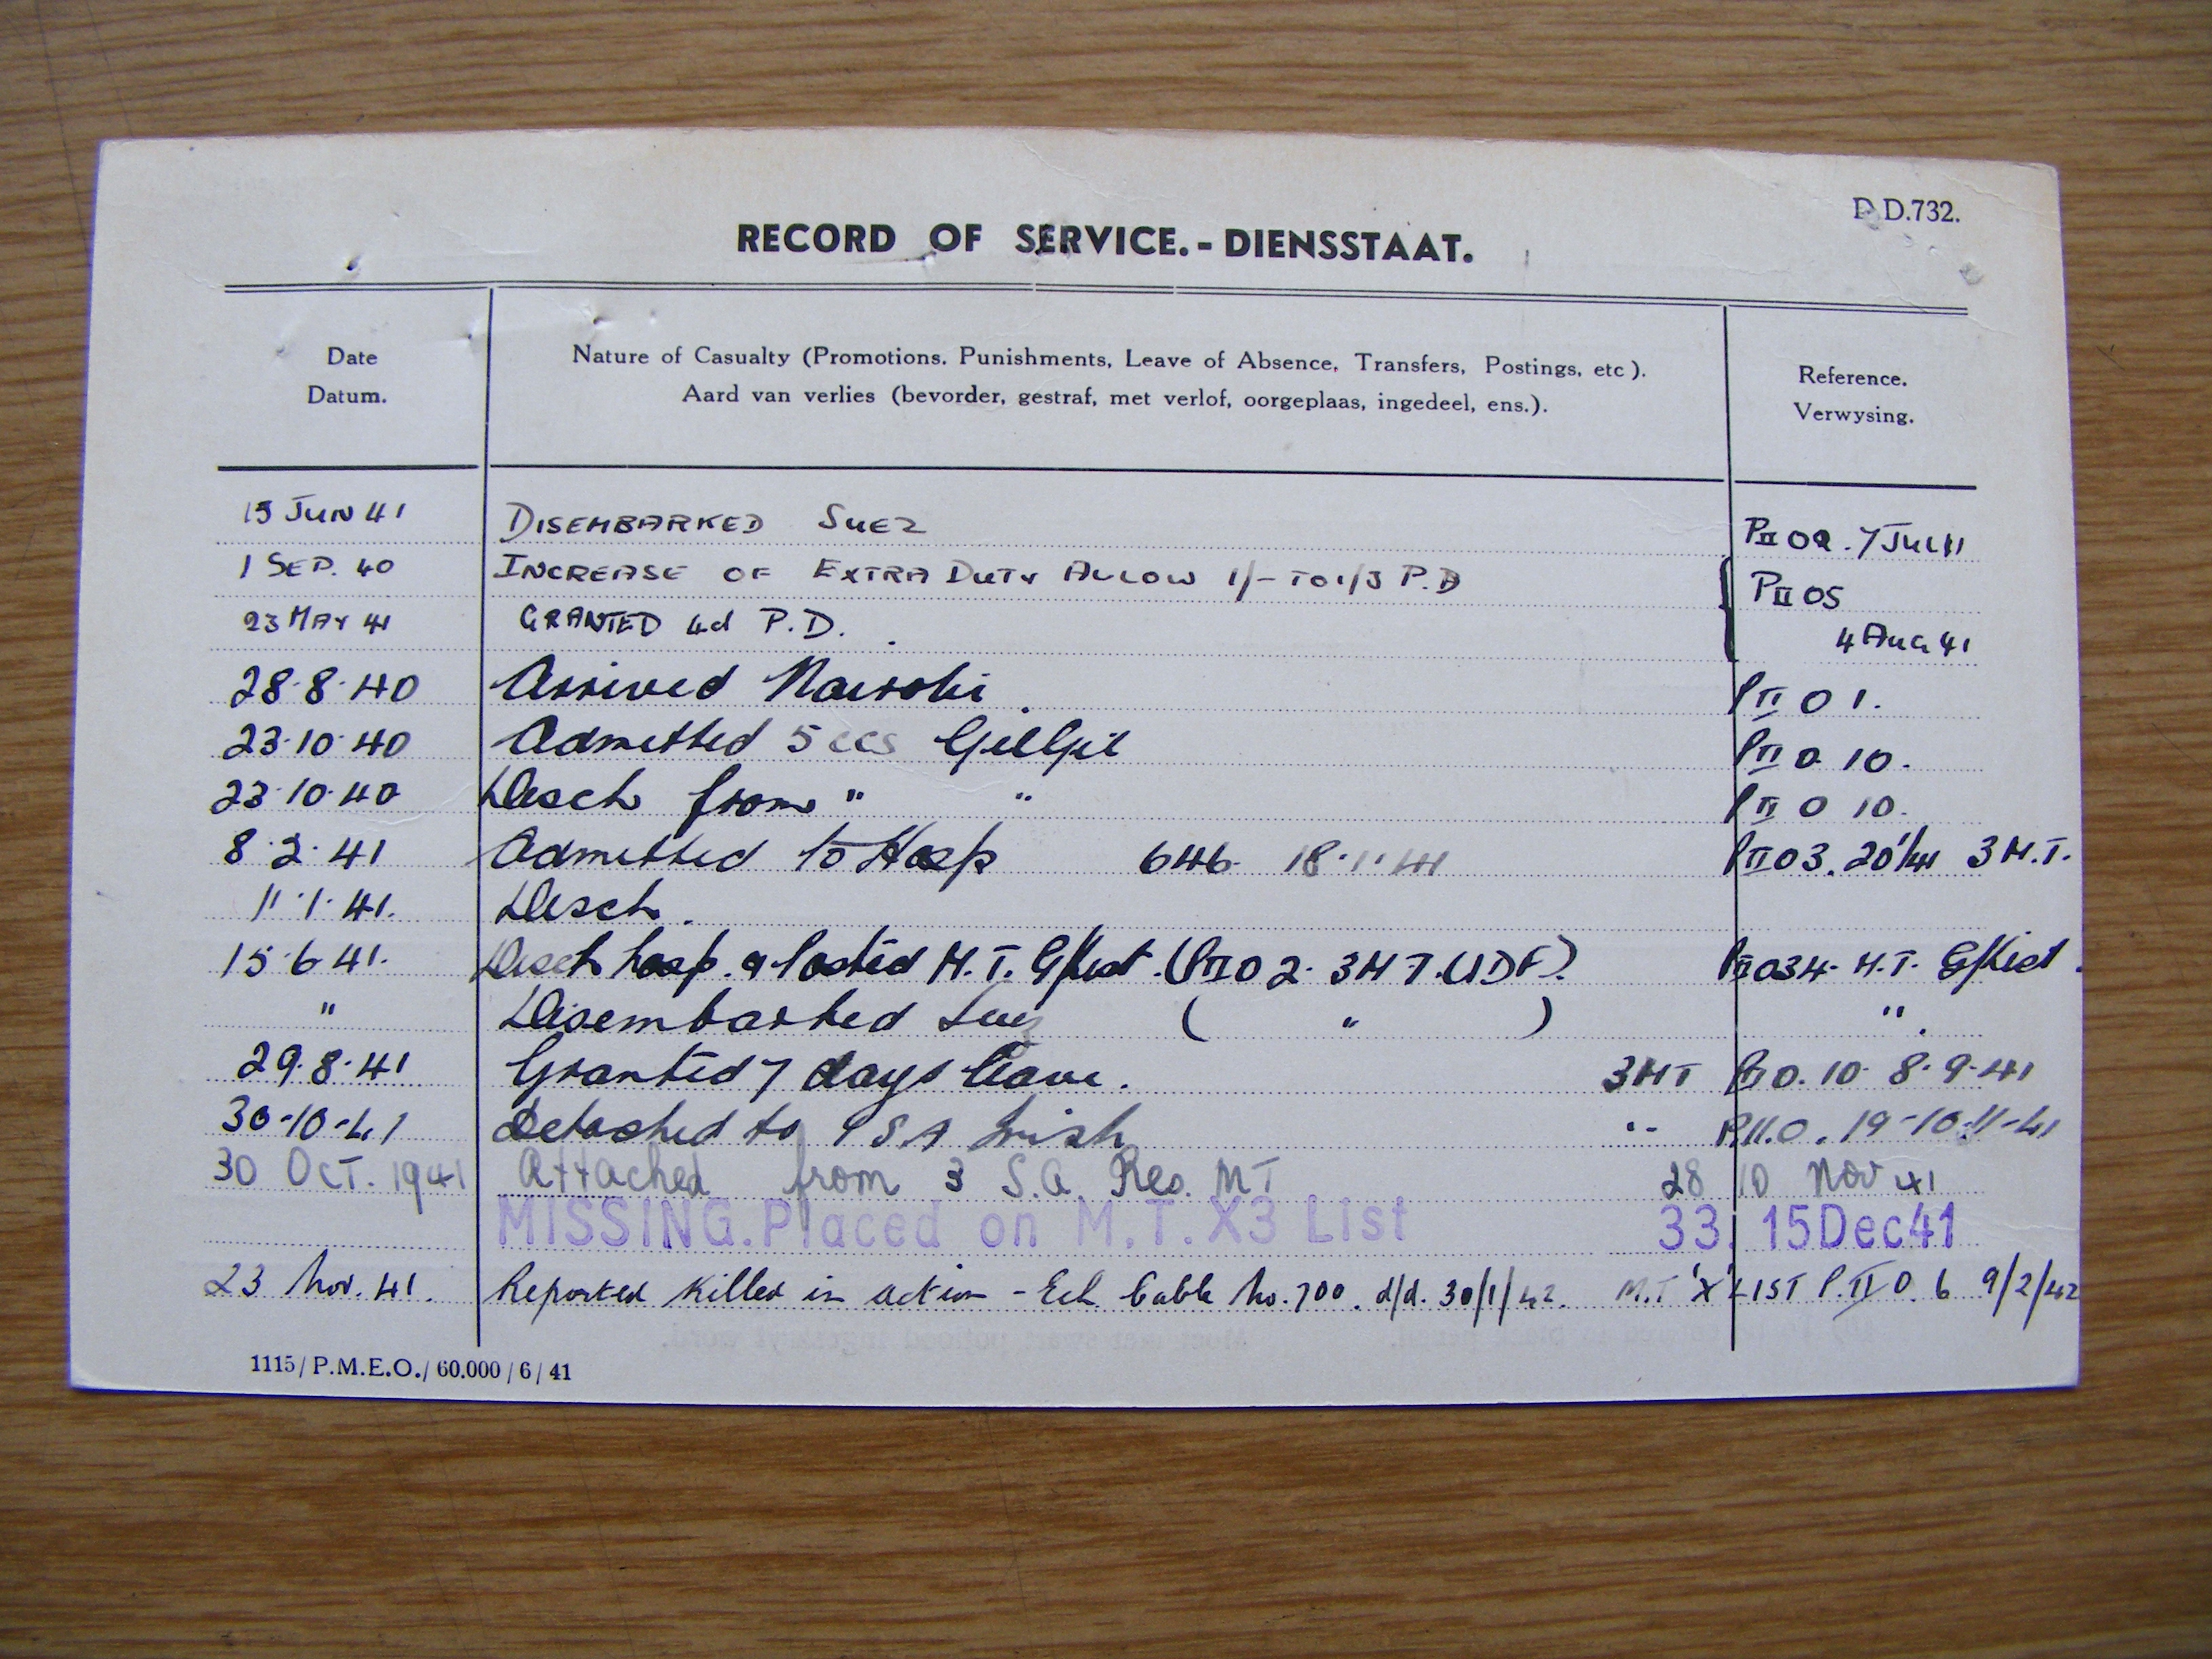 D.D.732.
RECORD OF SERVICE.-DIENSSTAAT.
Date
Datum.
Nature of Casualty (Promotions. Punishments, Leave of Absence, Transfers, Postings, etc ).
Aard van verlies (bevorder, gestraf, met verlof, oorgeplaas, ingedeel, ens.).
Reference.
Verwysing.
15 JUN 41 DISEMBARKED SUEZ PII 09. 7 JUL 41
1 SEP. 40 INCREASE OF EXTRA DUTY ALLOW 1/- TO 1/3 P.D PII 05
23 MAY 41 GRANTED 4d P.D. 4 AUG 41
28.8.40 Arrived Nairobi. PII O 1.
23.10.40 Admitted 5 CCS GilGil PII O 10.
23.10.40 Disch from " " PII O 10.
8.2.41 Admitted to Hosp 646 18.1.41 PII O 3. 20/1/41 3 M.T.
11.1.41. Disch.
15.6.41. Disch hosp. & Posted M.T. (PII O 2. 3 M T. UDF). PII O 34. M.T.
" Disembarked Suez ( " ) ".
29.8.41 Granted 7 days leave. 3MT PII O. 10. 8.9.41
30-10-41 Detached to 1 S A Irish " P.II.O. 19-10-11-41
30 OCT. 1941 Attached from 3 S.A. Res. MT 28 10 Nov 41
MISSING. Placed on M.T. X3 List 33. 15Dec41
23 Nov. 41. Reported killed in action - Ech. Cable No. 700. d/d. 30/1/42. M.T 'X' LIST P.II O. 6 9/2/42
1115/P.M.E.O./60.000/6/41